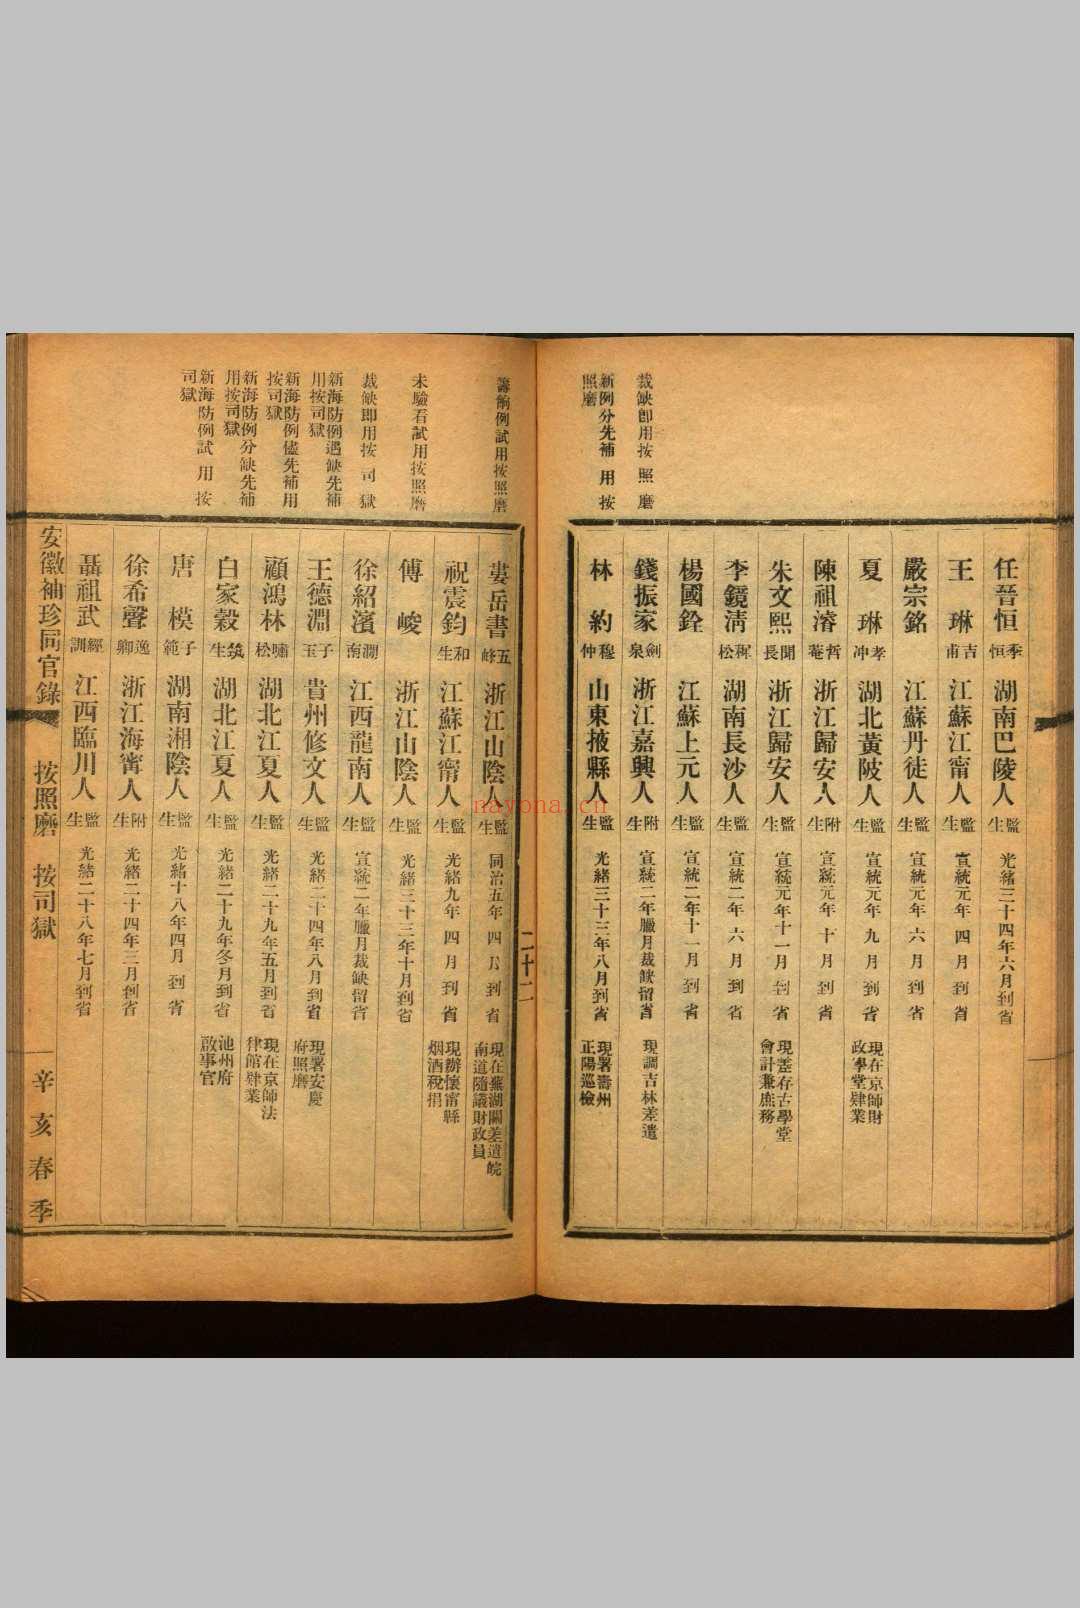 任晉恒 季恒 湖南巴陵人 監生 光緒三十四年六月到省
王琳 吉甫 江蘇江甯人 監生 宣統元年四月到省
嚴宗銘 江蘇丹徒人 監生 宣統元年六月到省
夏琳 孝冲 湖北黃陂人 監生 宣統元年九月到省 現在京師財政學堂肄業
陳祖濬 哲菴 浙江歸安人 附生 宣統元年十月到省
朱文熙 聞長 浙江歸安人 監生 宣統元年十一月到省 現差存古學堂會計兼庶務
李鏡清 稺松 湖南長沙人 監生 宣統二年六月到省
楊國銓 江蘇上元人 監生 宣統二年十一月到省
裁缺即用按照磨
錢振家 劍泉 浙江嘉興人 附生 宣統二年臘月裁缺留省 現調吉林差遣
新例分先補用按照磨
林約 穆仲 山東掖縣人 監生 光緒三十三年八月到省 現署壽州正陽巡檢
二十二
籌餉例試用按照磨
婁岳書 五峰 浙江山陰人 監生 同治五年四月到省 現在蕪湖關差遣皖南道隨議財政員
祝震鈞 和生 江蘇江甯人 監生 光緒九年四月到省 現辦懷甯縣烟酒稅捐
未驗看試用按照磨
傅峻 浙江山陰人 監生 光緒三十三年十月到省
裁缺即用按司獄
徐紹濱 澗南 江西龍南人 監生 宣統二年臘月裁缺留省
新海防例遇缺先補用按司獄
王德淵 子玉 貴州修文人 監生 光緒二十四年八月到省 現署安慶府照磨
新海防例儘先補用按司獄
顧鴻林 嘯松 湖北江夏人 監生 光緒二十九年五月到省 現在京師法律館肄業
新海防例分缺先補用按司獄
白家穀 筑生 湖北江夏人 監生 光緒二十九年冬月到省 池州府啟事官
新海防例試用按司獄
唐模 子範 湖南湘陰人 監生 光緒十八年四月到省
徐希聲 逸卿 浙江海甯人 附生 光緒二十四年三月到省
聶祖武 經訓 江西臨川人 監生 光緒二十八年七月到省
安徽袖珍同官錄 按照磨 按司獄 辛亥春季
nayona.cn